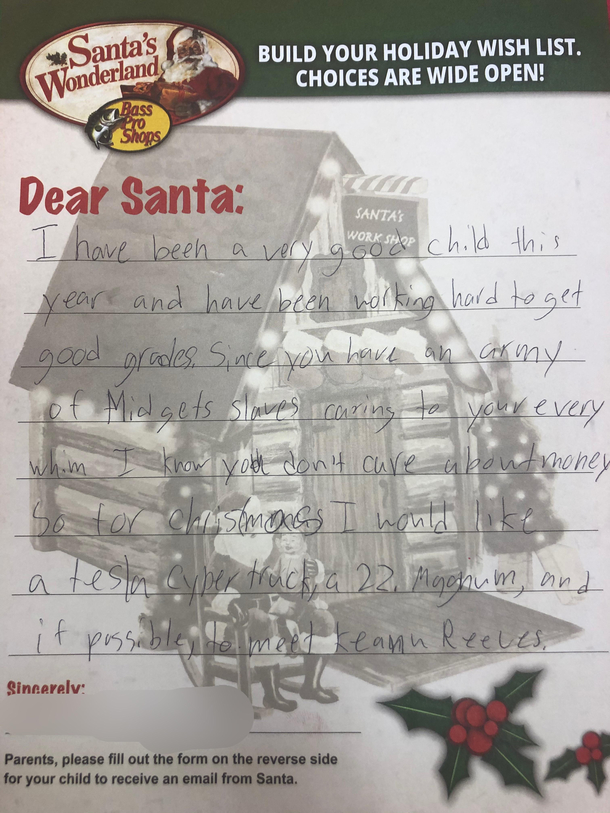 Santa's
Wonderland
Bass
Pro
Shops
BUILD YOUR HOLIDAY WISH LIST.
CHOICES ARE WIDE OPEN!
Dear Santa:
SANTA'S
WORK SHOP
I have been a very good child this
year and have been working hard to get
good grades. Since you have an army
of Midgets slaves caring to your every
whim I know you don't care about money
So for christmas I would like
a tesla Cyber truck, a 22. Magnum, and
if possible, to meet Keanu Reeves.
Sincerely:
Parents, please fill out the form on the reverse side
for your child to receive an email from Santa.